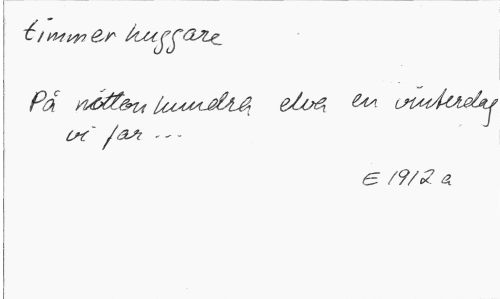 timmerhuggare
På nittonhundra elva en vinterdag
vi far ...
E 1912 a